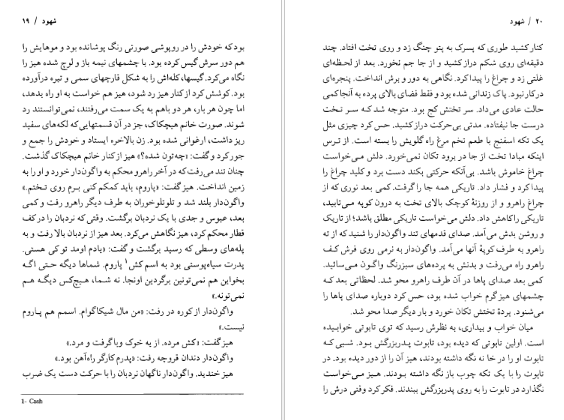 شهود / ۱۹
بود که خودش را در روپوشی صورتی رنگ پوشانده بود و موهایش را
هم دور سرش گیس کرده بود. با چشمهای نیمه باز و لوچ شده هیز را
نگاه می‌کرد. گیسها، کله‌اش را به شکل قارچهای سمی و تیره درآورده
بود. کوشش کرد از کنار هیز رد شود، هیز هم خواست به او راه بدهد،
اما چون هر بار، هر دو باهم به یک سمت می‌رفتند، نمی‌توانستند رد
شوند. صورت خانم هیچکاک، جز در آن قسمتهایی که لکه‌های سفید
ریز داشت، ارغوانی شده بود. زن بالاخره ایستاد و خودش را جمع و
جور کرد و گفت: «چه‌تون شده؟» هیز از کنار خانم هیچکاک گذشت.
چنان تند می‌رفت که در آخر راهرو محکم به واگون‌دار خورد و او را به
زمین انداخت. هیز گفت: «پاروم، باید کمکم کنی برم روی تختم.»
واگون‌دار بلند شد و تلوتلوخوران به طرف دیگر راهرو رفت و کمی
بعد، عبوس و جدی با یک نردبان برگشت. وقتی که نردبان را در کف
قطار محکم کرد، هیز نگاهش می‌کرد. بعد هیز از نردبان بالا رفت و به
پله‌های وسطی که رسید برگشت و گفت: «یادم اومد تو کی هستی.
پدرت سیاه‌پوستی بود به اسم کش۱ پاروم. شماها دیگه حتی اگه
بخواین هم نمی‌تونین برگردین اونجا. نه شما، هیچ‌کس دیگه هم
نمی‌تونه.»
واگون‌دار از کوره در رفت: «من مال شیکاگوام. اسمم هم پاروم
نیست.»
هیز گفت: «کش مرده. از یه خوک وبا گرفت و مرد.»
واگون‌دار دندان قروچه رفت: «پدرم کارگر راه‌آهن بود.»
هیز خندید. واگون‌دار ناگهان نردبان را با حرکت دست یک ضرب
1- Cash
۲۰ / شهود
کنار کشید طوری که پسرک به پتو چنگ زد و روی تخت افتاد. چند
دقیقه‌ای روی شکم دراز کشید و از جا جم نخورد. بعد از لحظه‌ای
غلتی زد و چراغ را پیدا کرد. نگاهی به دور و برش انداخت. پنجره‌ای
در کار نبود. پاک زندانی شده بود و فقط فضای بالای پرده به آنجا کمی
حالت عادی می‌داد. سر تختش کج بود. متوجه شد که سر تخت
درست جا نیفتاده. مدتی بی‌حرکت دراز کشید. حس کرد چیزی مثل
یک تکه اسفنج با طعم تخم مرغ راه گلویش را بسته است. از ترس
اینکه مبادا تخت از جا در برود تکان نمی‌خورد. دلش می‌خواست
چراغ خاموش باشد. بی‌آنکه حرکتی بکند دست برد و کلید چراغ را
پیدا کرد و فشار داد. تاریکی همه جا را گرفت. کمی بعد نوری که از
چراغ راهرو و از روزنهٔ کوچک بالای تخت به درون کوپه می‌تابید،
تاریکی را کاهش داد. دلش می‌خواست تاریکی مطلق باشد؛ از تاریک
و روشن بدش می‌آمد. صدای قدمهای تند واگون‌دار را شنید که از ته
راهرو به طرف کوپهٔ آنها می‌آمد. واگون‌دار به نرمی روی فرش کف
راهرو راه می‌رفت و بدنش به پرده‌های سبزرنگ واگون می‌سائید.
کمی بعد صدای پاها در آن طرف راهرو محو شد. لحظاتی بعد که
چشمهای هیز گرم خواب شده بود، حس کرد دوباره صدای پاها را
می‌شنود. پردهٔ تختش تکان خورد و بار دیگر صدا محو شد.
میان خواب و بیداری، به نظرش رسید که توی تابوتی خوابیده
است. اولین تابوتی که دیده بود، تابوت پدربزرگش بود. شبی که
تابوت او را در خانه نگه داشته بودند، هیز آن را از دور دیده بود. در
تابوت را با یک تکه چوب باز نگه داشته بودند. هیز می‌خواست
نگذارد در تابوت را به روی پدربزرگش ببندند. فکر کرد وقتی درش را